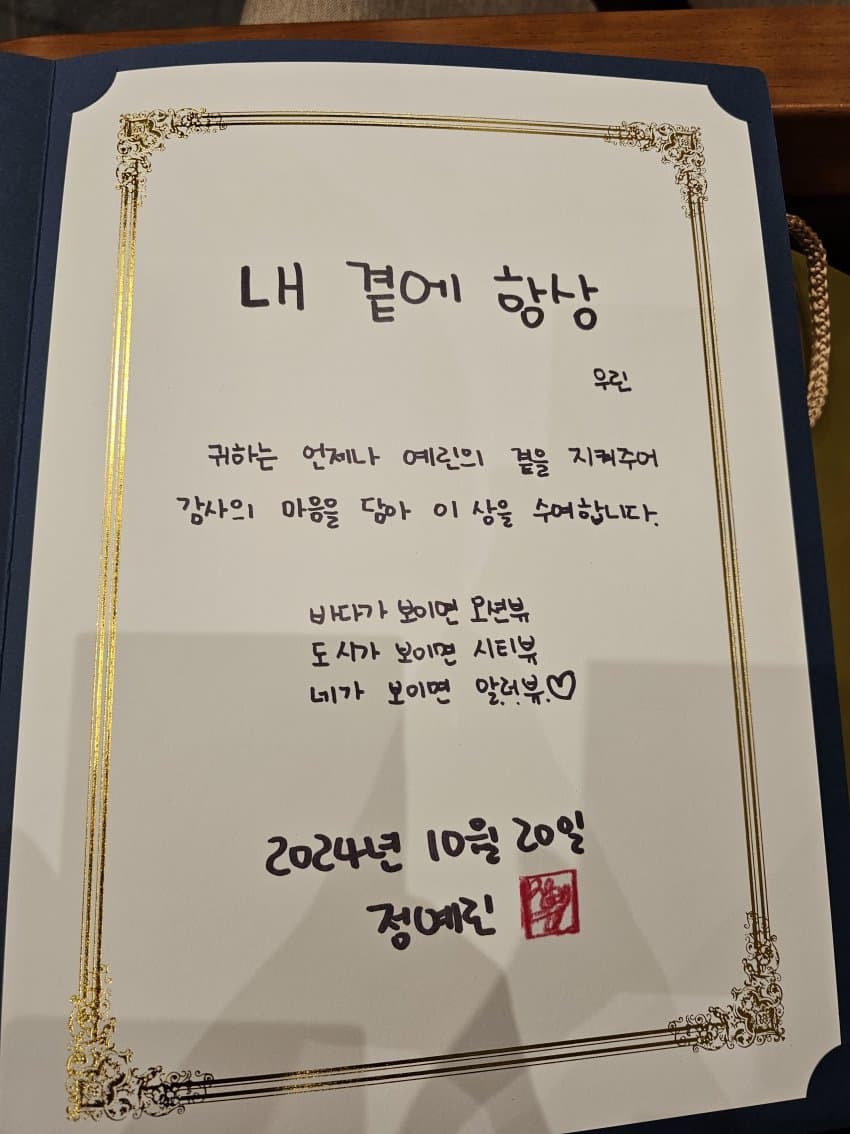 내 곁에 항상
우린
귀하는 언제나 예린의 곁을 지켜주어
감사의 마음을 담아 이 상을 수여합니다.
바다가 보이면 오션뷰
도시가 보이면 시티뷰
네가 보이면 알러뷰♡
2024년 10월 20일
정예린